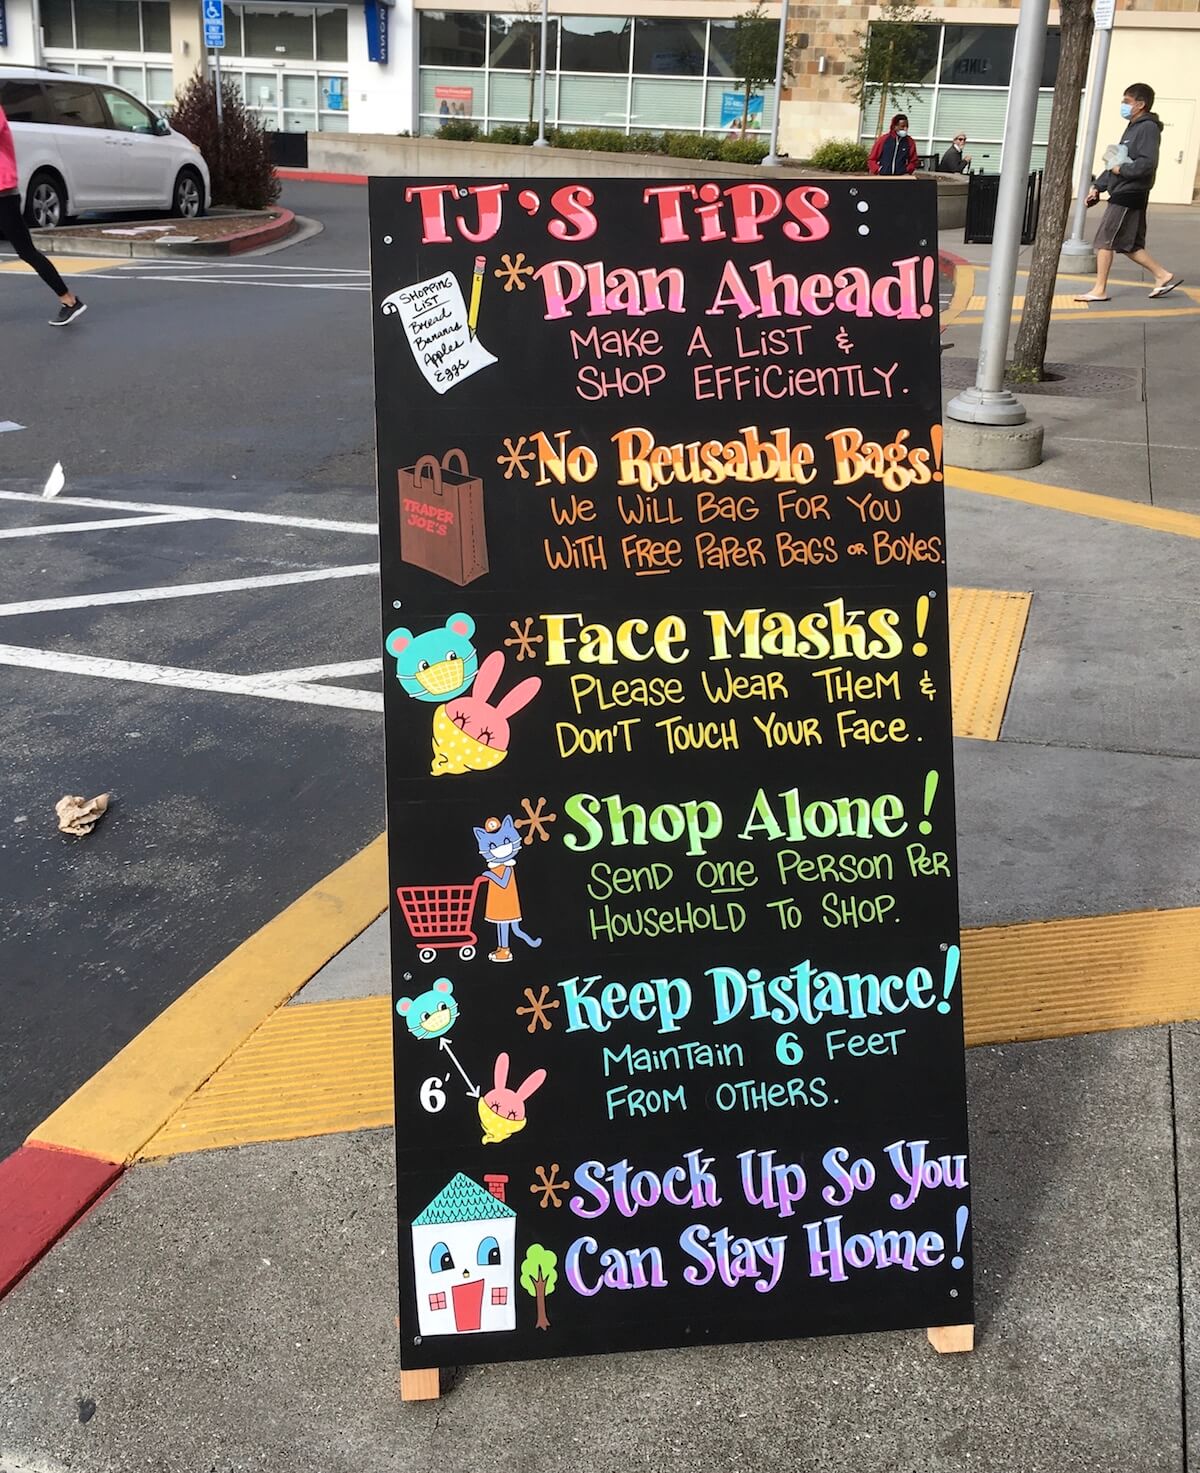 TJ's Tips:
*Plan Ahead!
Make A List &
Shop Efficiently.
SHOPPING
LIST
Bread
Bananas
Apples
Eggs
*No Reusable Bags!
We Will Bag For You
With Free Paper Bags or Boxes.
TRADER
JOE'S
*Face Masks!
Please Wear Them &
Don't Touch Your Face.
*Shop Alone!
Send one Person Per
Household To Shop.
*Keep Distance!
Maintain 6 Feet
From Others.
6'
*Stock Up So You
Can Stay Home!